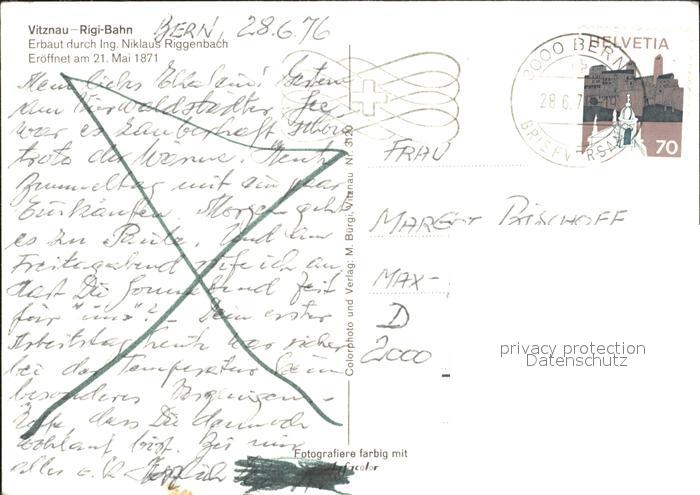 Vitznau – Rigi-Bahn
Erbaut durch Ing. Niklaus Riggenbach
Eröffnet am 21. Mai 1871
BERN, 28.6.76
Mein liebes! Gestern
am Vierwaldstätter See
war es zauberhaft schön
trotz der Wärme. Heute
Bummeltag mit ein paar
Einkäufen. Morgen geht
es zu Paule. Und am
Freitagabend rufe ich an
hast Du Sonnabend Zeit
für "uns"? – Dein erster
Arbeitstag heute war sicher
bei der Temperatur kein
besonderes Vergnügen –
hoffe, dass Du dennoch
wohlauf bist. Bei mir
alles o.k.
Colorphoto und Verlag: M. Bürgi, Vitznau Nr. 3120
Fotografiere farbig mit
2000 BERN
28.6.7
BRIEFVERSAND
HELVETIA
70
FRAU
MARGOT BISCHOFF
MAX-
D
2000
privacy protection
Datenschutz